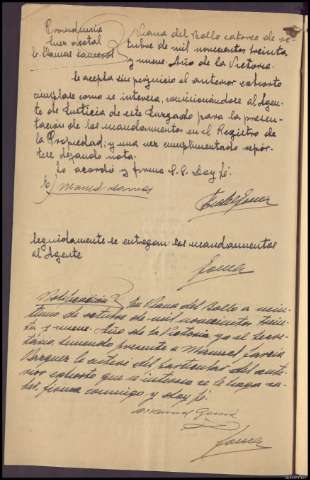 Providencia
Juez
D. Manuel
Viana del Bollo catorce de oc-
tubre de mil novecientos treinta
y nueve. Año de la Victoria.
Se acepta sin perjuicio el anterior exhorto
cúmplase como se interesa, comisionándose al Agen-
te de Justicia de este Juzgado para la presen-
tación de los mandamientos en el Registro de
la Propiedad; y una vez cumplimentado repór-
tese dejando nota.
Lo acordó y firma S.S. Doy fé.
Seguidamente se entregan los mandamientos
al Agente
Notificación En Viana del Bollo a vein-
tiuno de octubre de mil novecientos trein-
ta y nueve. Año de la Victoria yo el Secre-
tario teniendo presente a Manuel García
le enteré del particular del ante-
rior exhorto que se interesa se le haga sa-
ber, firma conmigo y doy fé
Manuel García